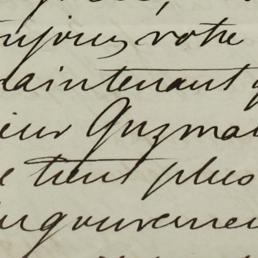 toujours votre
maintenant
sieur Guzman
tient plus
gouvernemen